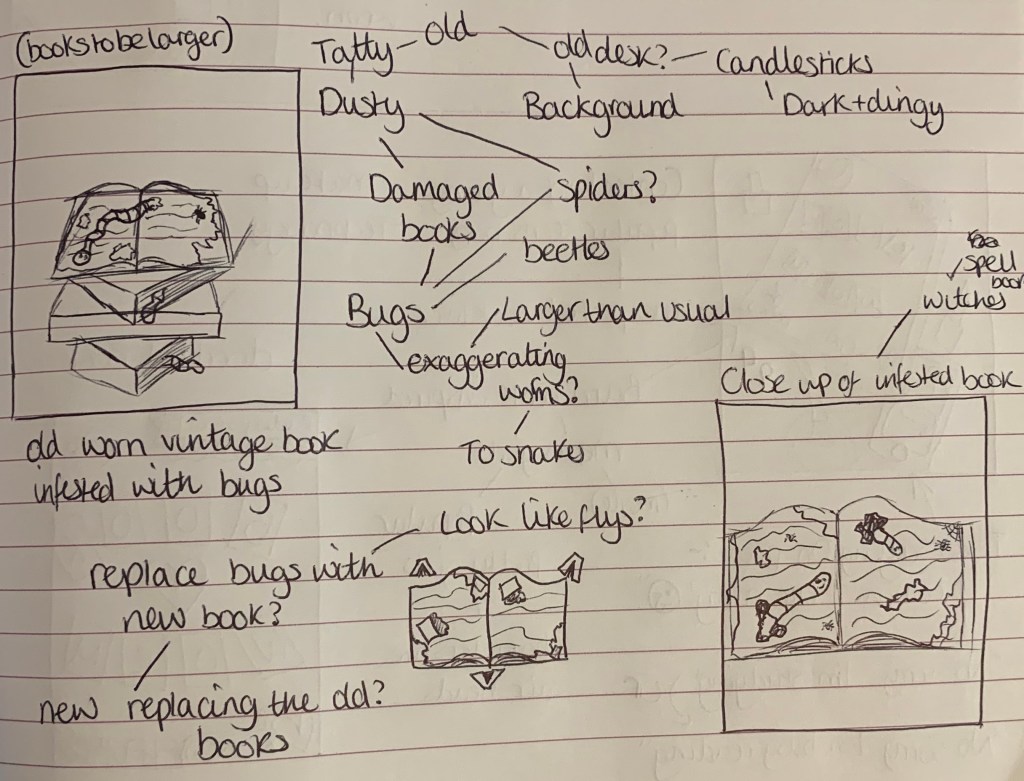 (books to be larger)
Tatty - Old
old desk? - Candlesticks
Dusty
Background
Dark + dingy
Damaged
books
Spiders?
beetles
Bugs
Larger than usual
exaggerating
worms?
To snakes
spell
book
witches
Close up of infested book
old worn vintage book
infested with bugs
Look like flys?
replace bugs with
new book?
new replacing the old?
books